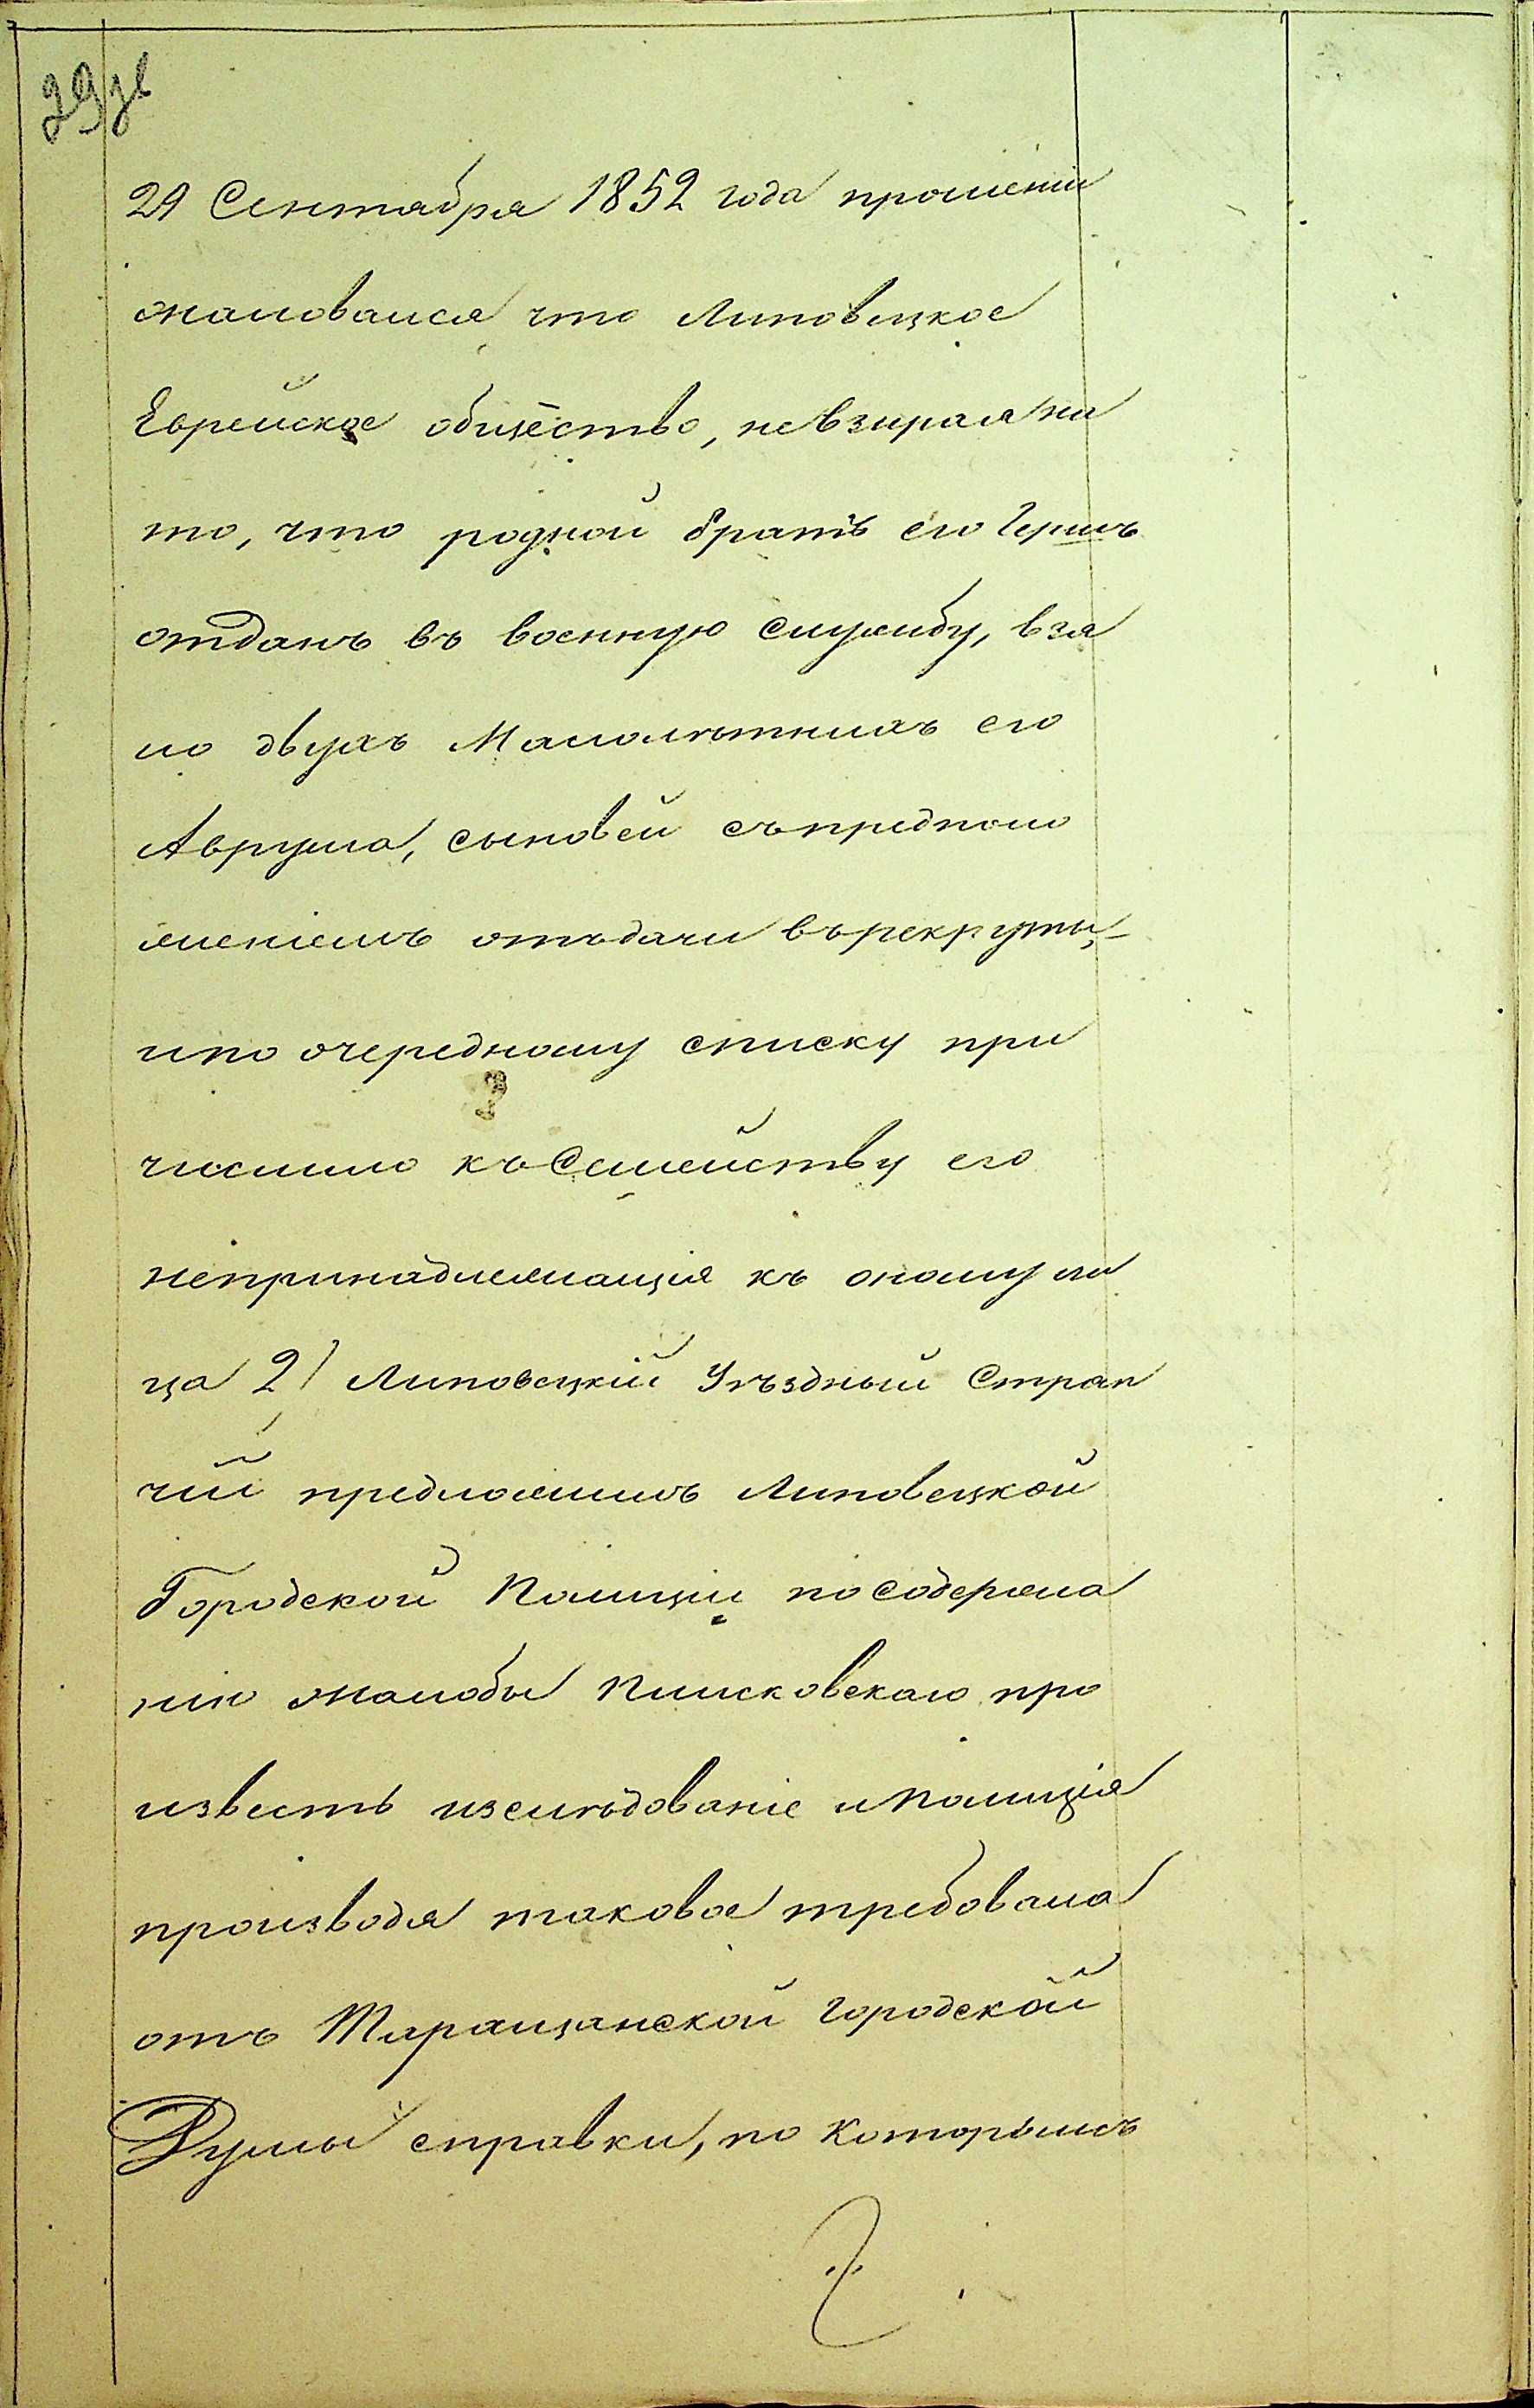 29 зв
29 Сентября 1852 года прошеніи
жаловался что Липовецкое
Еврейское общество, невзирая на
то, что родной братъ его Гершъ
отданъ въ военную службу, взя
ло двухъ Малолѣтнихъ его
Аврума, сыновей съ предполо
женіемъ отъдачи въ рекруты,
и по очередному списку при
числило къ Семейству его
непринадлежащія къ оному ли
ца 2/ Липовецкій Уѣздный Стряп
чій предложилъ Липовецкой
Городской Полиціи по содержа
нію жалобы Плисковскаго про
известь изслѣдованіе и Полиція
производя таковое требовала
отъ Таращанской Городской
Думы справки, по которымъ